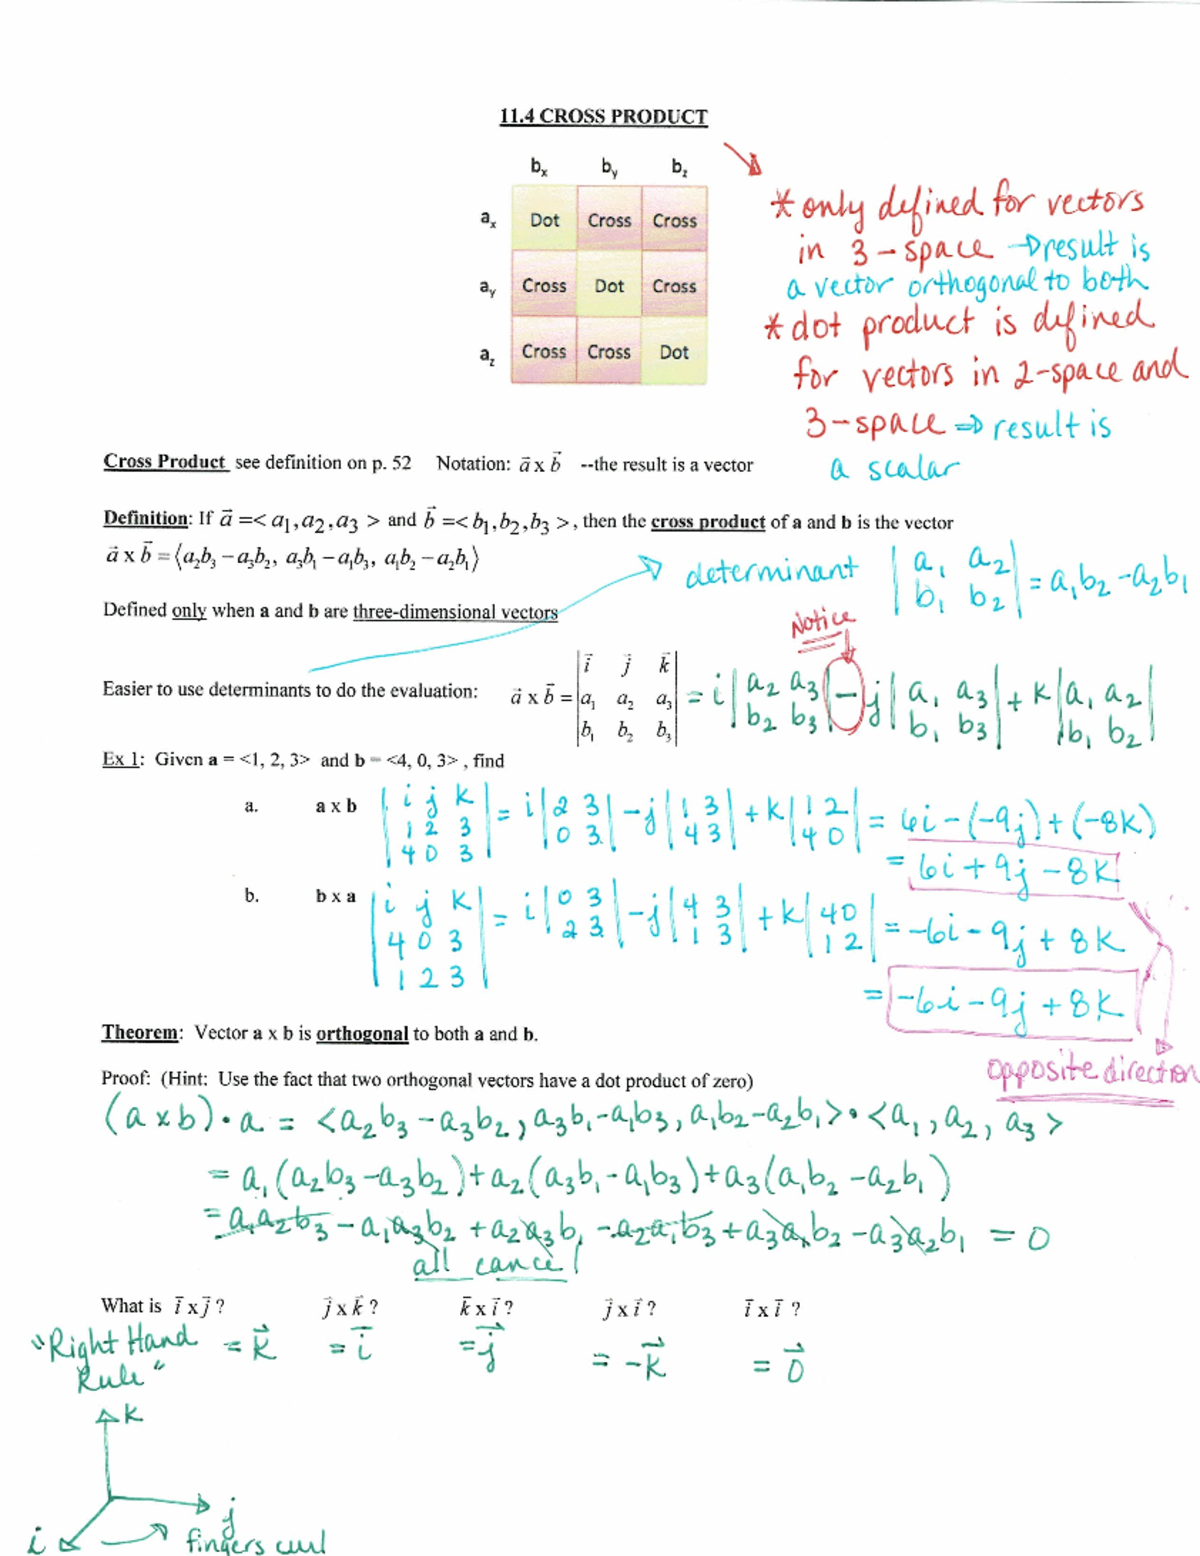 11.4 CROSS PRODUCT
bx by bz
ax Dot Cross Cross
ay Cross Dot Cross
az Cross Cross Dot
* only defined for vectors
in 3-space → result is
a vector orthogonal to both
* dot product is defined
for vectors in 2-space and
3-space ⇒ result is
a scalar
Cross Product see definition on p. 52 Notation: a⃗ x b⃗ --the result is a vector
Definition: If a⃗ =< a₁,a₂,a₃ > and b⃗ =< b₁,b₂,b₃ >, then the cross product of a and b is the vector
a⃗ x b⃗ = ⟨a₂b₃ – a₃b₂, a₃b₁ – a₁b₃, a₁b₂ – a₂b₁⟩
→ determinant |a₁ a₂; b₁ b₂| = a₁b₂ - a₂b₁
Defined only when a and b are three-dimensional vectors
Notice
Easier to use determinants to do the evaluation: a⃗ x b⃗ = |i⃗ j⃗ k⃗; a₁ a₂ a₃; b₁ b₂ b₃| = i|a₂ a₃; b₂ b₃| - j|a₁ a₃; b₁ b₃| + k|a₁ a₂; b₁ b₂|
Ex 1: Given a = <1, 2, 3> and b = <4, 0, 3> , find
a. a x b |i j k; 1 2 3; 4 0 3| = i|2 3; 0 3| - j|1 3; 4 3| + k|1 2; 4 0| = 6i - (-9j) + (-8k)
= 6i + 9j - 8k
b. b x a |i j k; 4 0 3; 1 2 3| = i|0 3; 2 3| - j|4 3; 1 3| + k|4 0; 1 2| = -6i - 9j + 8k
= -6i - 9j + 8k
Theorem: Vector a x b is orthogonal to both a and b.
opposite direction
Proof: (Hint: Use the fact that two orthogonal vectors have a dot product of zero)
(a x b) • a = <a₂b₃ - a₃b₂, a₃b₁ - a₁b₃, a₁b₂ - a₂b₁> • <a₁, a₂, a₃>
= a₁(a₂b₃ - a₃b₂) + a₂(a₃b₁ - a₁b₃) + a₃(a₁b₂ - a₂b₁)
= a₁a₂b₃ - a₁a₃b₂ + a₂a₃b₁ - a₂a₁b₃ + a₃a₁b₂ - a₃a₂b₁ = 0
all cancel
What is i⃗ x j⃗ ? j⃗ x k⃗ ? k⃗ x i⃗ ? j⃗ x i⃗ ? i⃗ x i⃗ ?
"Right Hand = k⃗ = i⃗ = j⃗ = -k⃗ = 0⃗
Rule"
k
j
i fingers curl